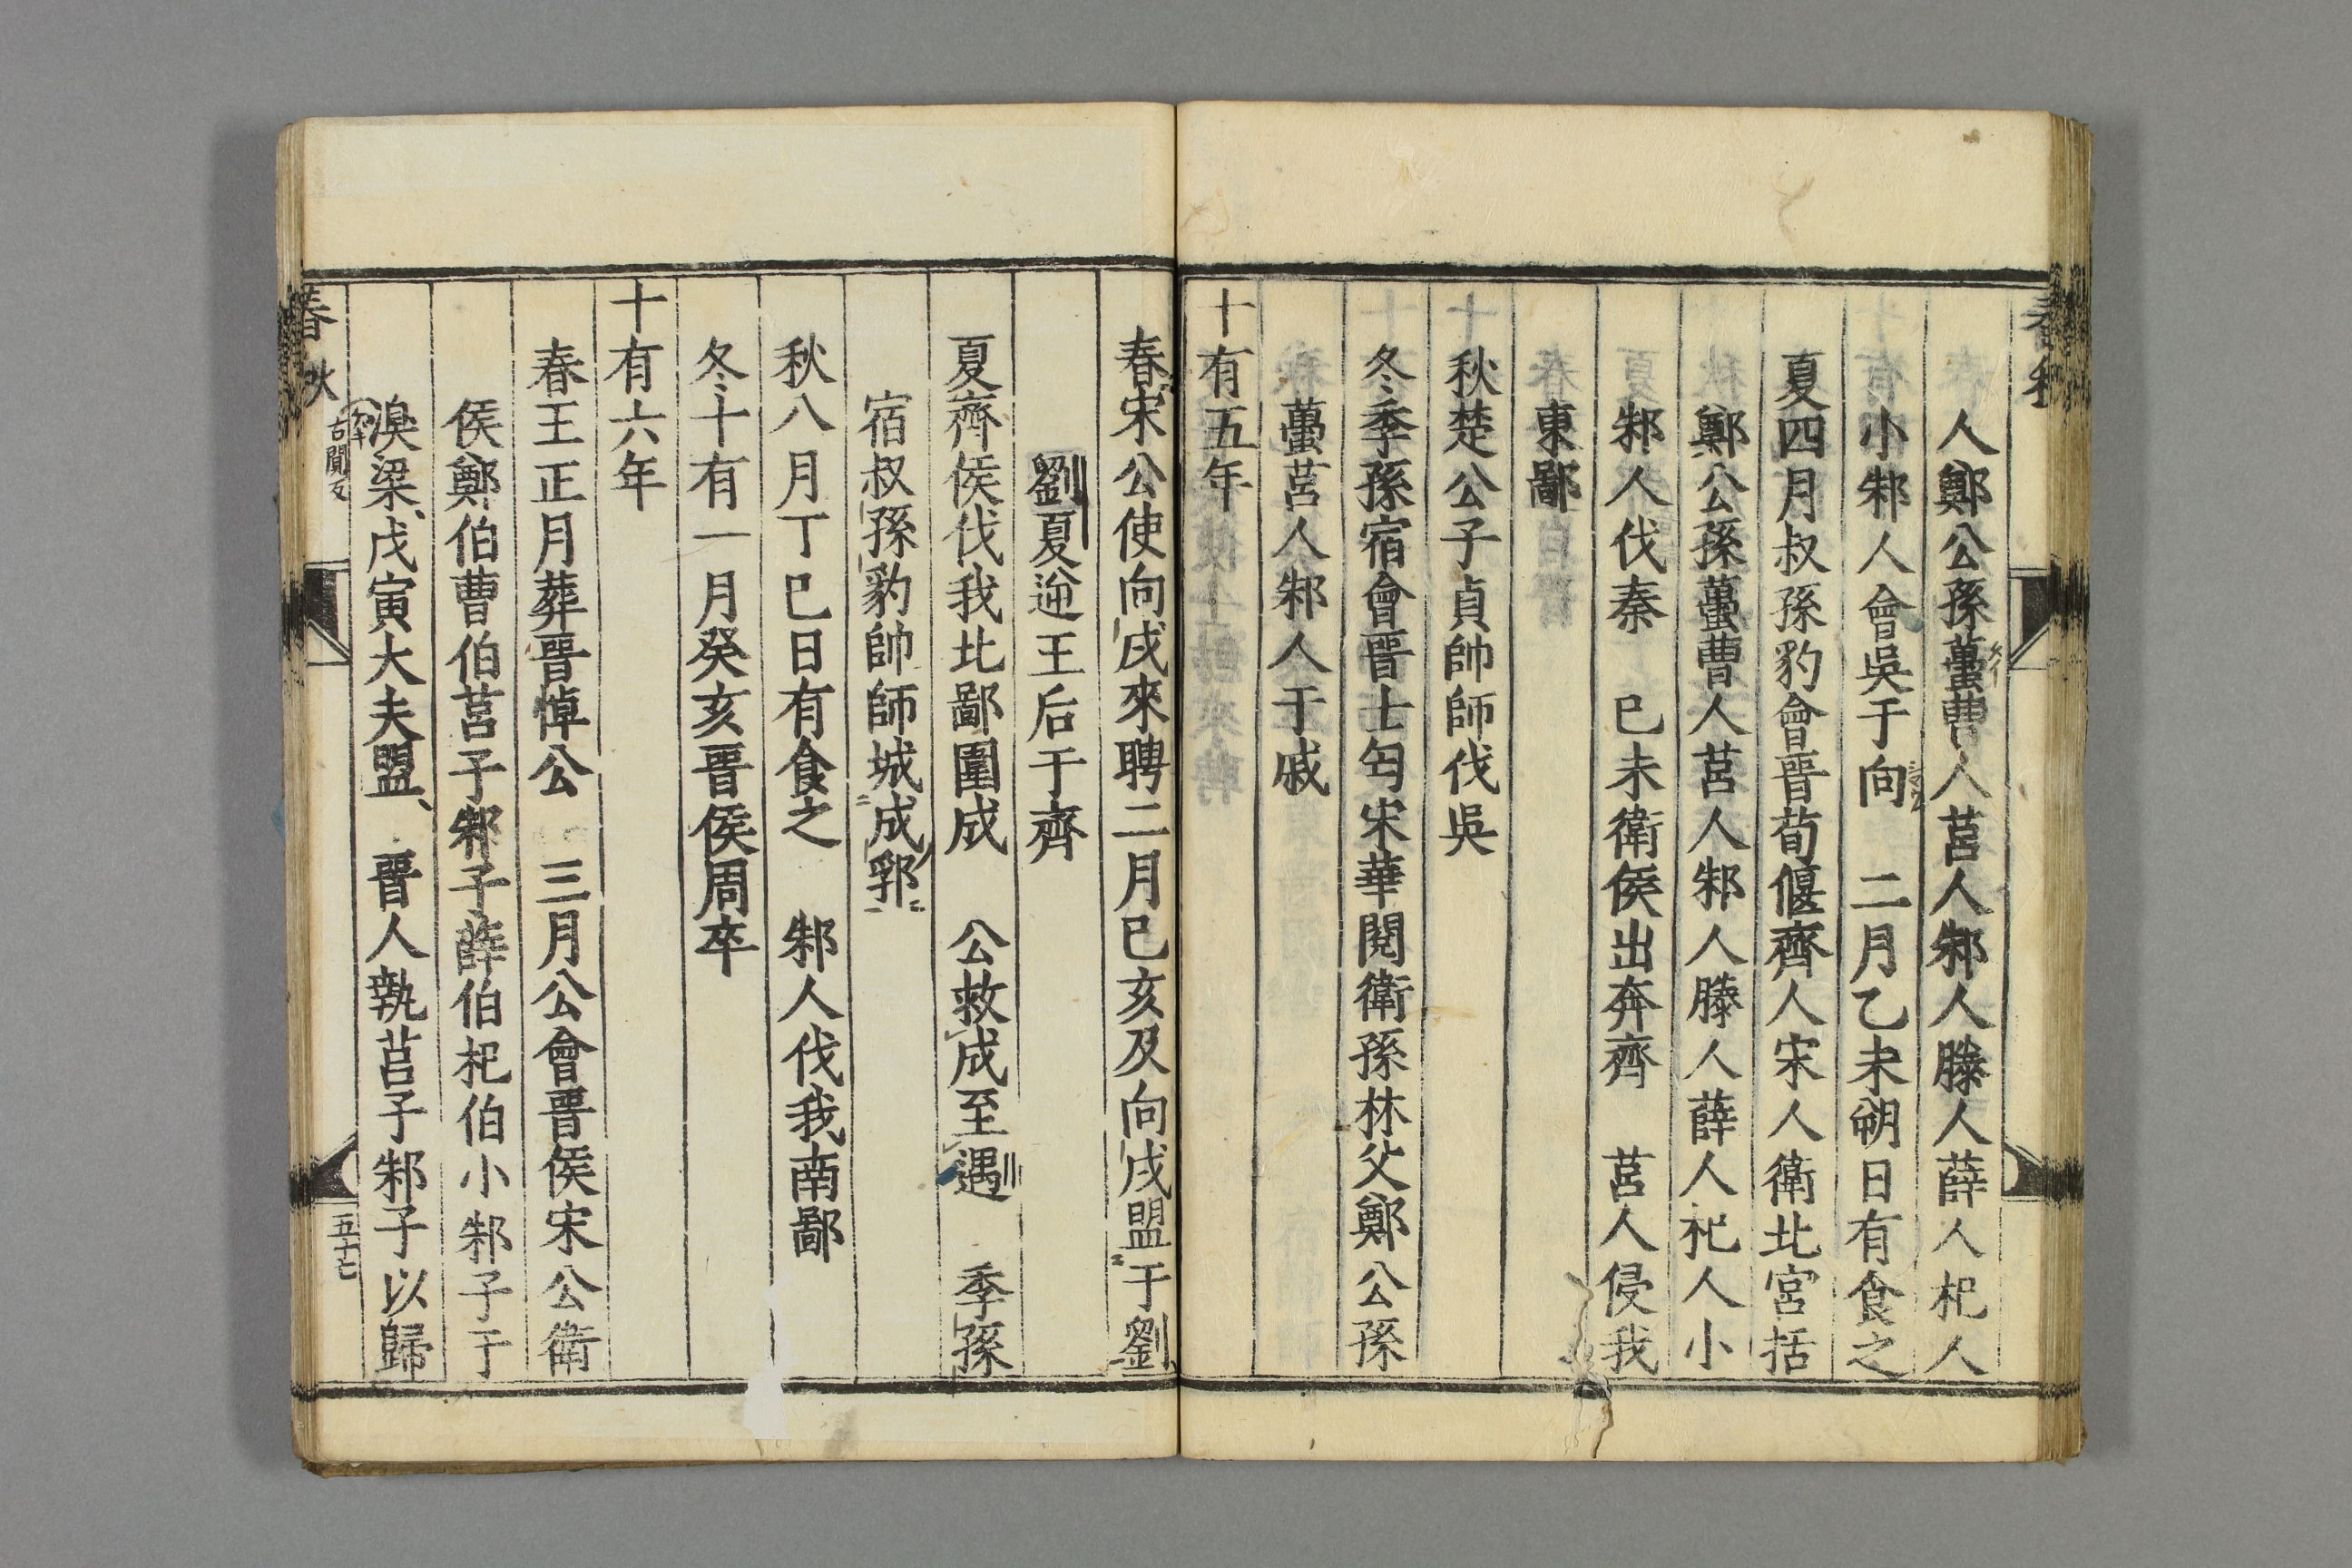 人鄭公孫蠆曹人莒人邾人滕人薛人杞人
小邾人會吳于向　二月乙未朔日有食之
夏四月叔孫豹會晉荀偃齊人宋人衛北宮括
鄭公孫蠆曹人莒人邾人滕人薛人杞人小
邾人伐秦　已未衛侯出奔齊　莒人侵我
東鄙
秋楚公子貞帥師伐吳
冬季孫宿會晉士匄宋華閱衛孫林父鄭公孫
蠆莒人邾人于戚
十有五年
春宋公使向戌來聘二月已亥及向戌盟于劉
劉夏逆王后于齊
夏齊侯伐我北鄙圍成　公救成至遇　季孫
宿叔孫豹帥師城成郛
秋八月丁巳日有食之　邾人伐我南鄙
冬十有一月癸亥晉侯周卒
十有六年
春王正月葬晉悼公　三月公會晉侯宋公衛
侯鄭伯曹伯莒子邾子薛伯杞伯小邾子于
溴梁戊寅大夫盟　晉人執莒子邾子以歸
古闃反
春秋
五十七